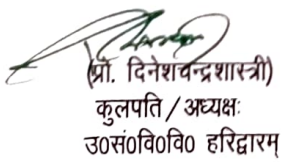 (प्रो. दिनेशचन्द्रशास्त्री)
कुलपति / अध्यक्षः
उ0सं0वि0वि0 हरिद्वारम्